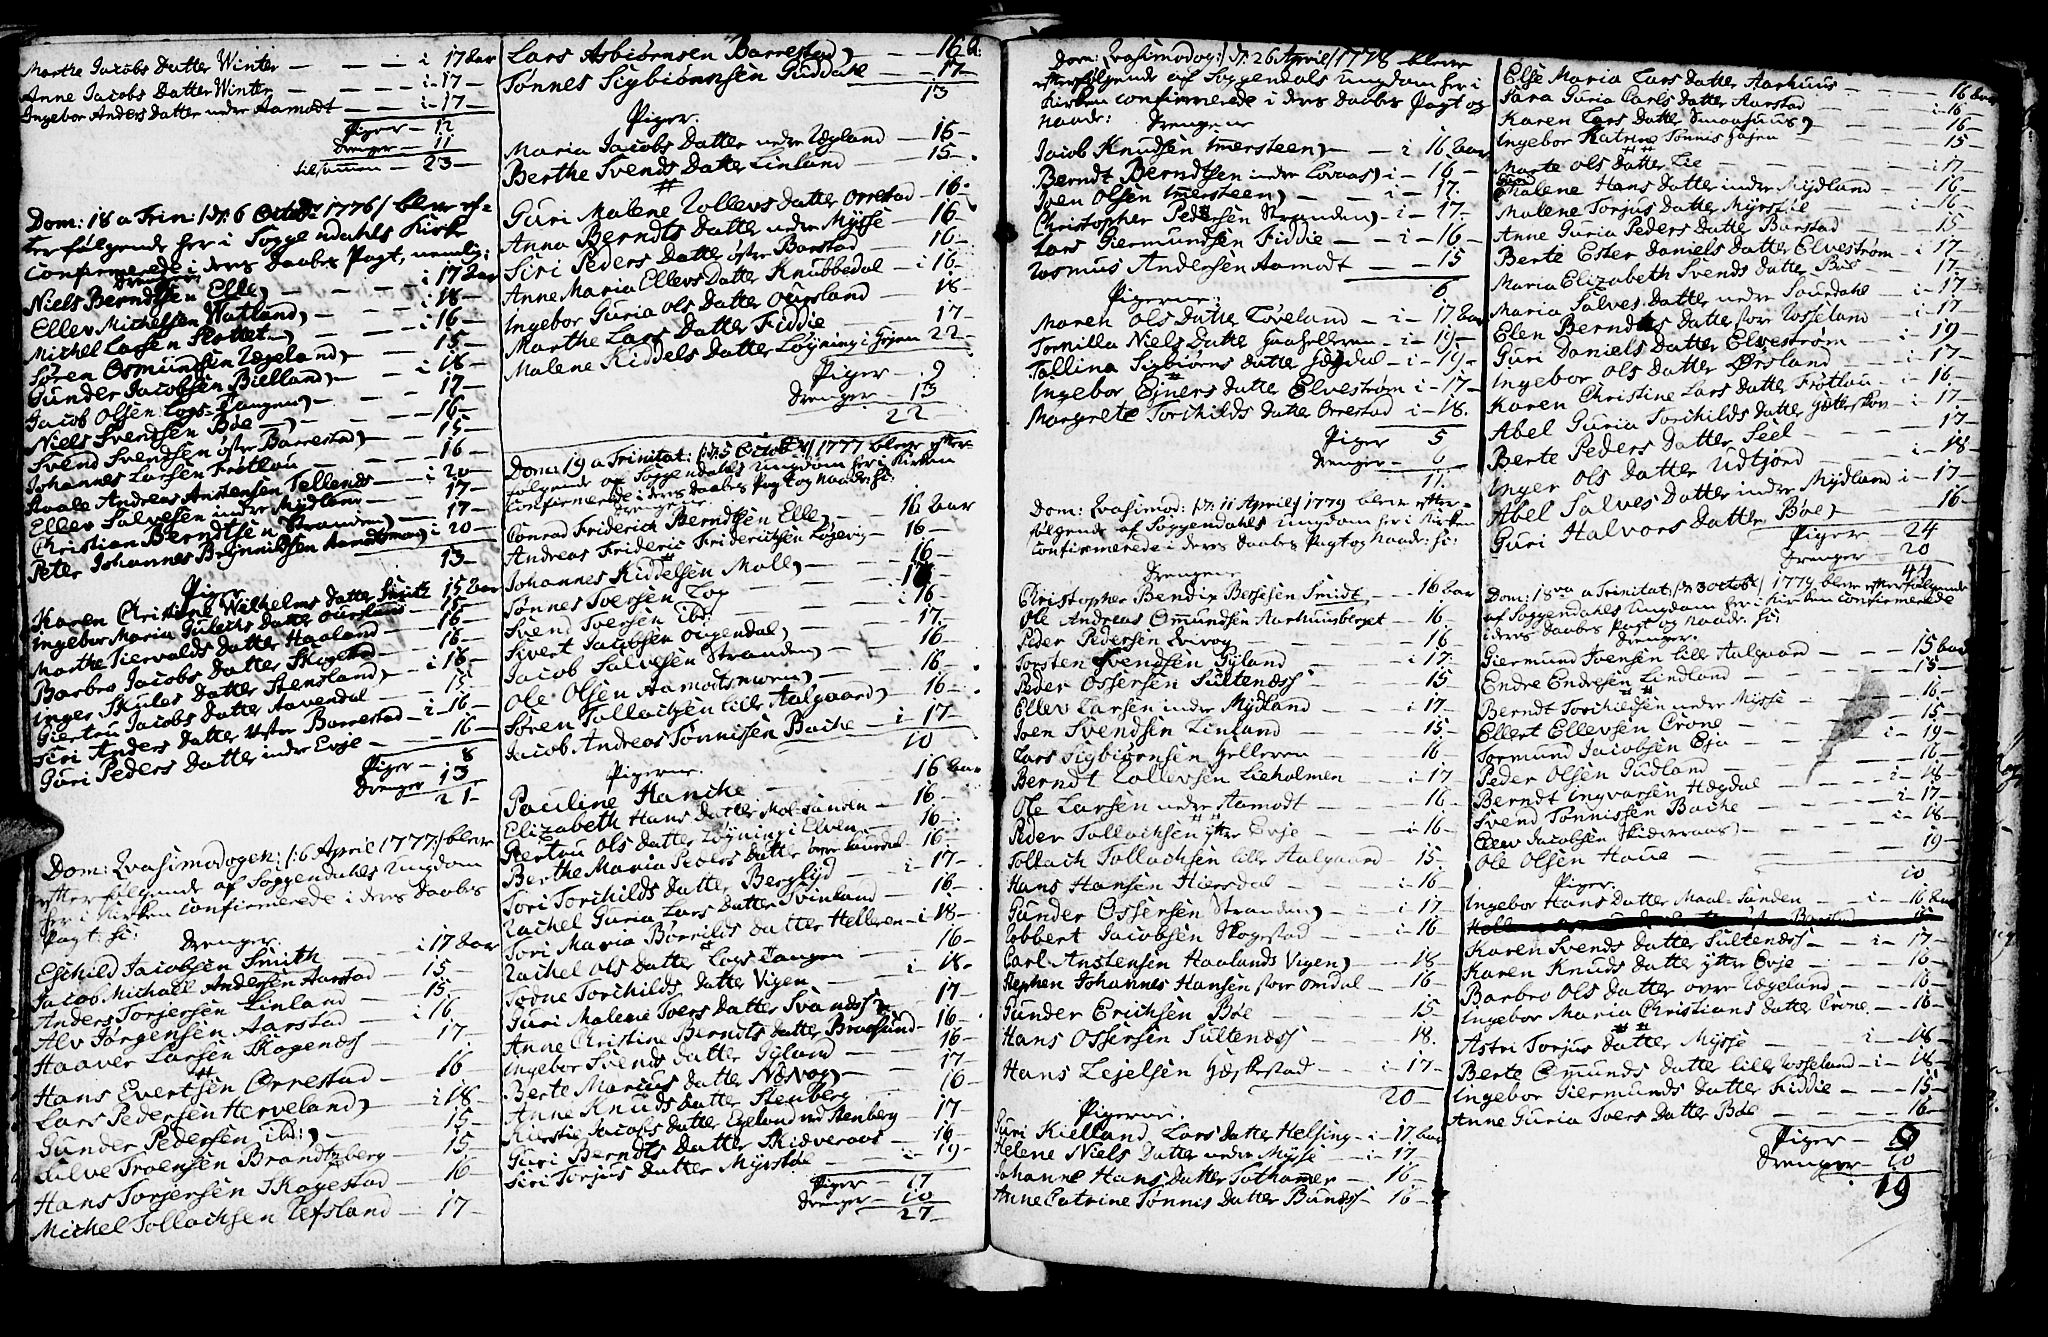 Marthe Jacobs Datter Winter — — — i 17 Aar
Anne Jacobs Datter Winter — — — i 17 —
Ingebor Anders Datter nedre Aamodt — — i 17 —
Piger — 12
Drenger — 11
tilsammen — 23 —
Dom: 18 a Trin: /: d. 6 Octob: 1776 / bleve ef-
terfølgende her i Soggendahls Kirke
confirmerede i deres Daabes Pagt, nemlig:
Drenger
Niels Berndtsen Elle — — — i 17 Aar
Ellev Michelsen Watland — — i 18 —
Michel Larsen Plottet — — i 16 —
Søren Osmundsen Ægeland — — 15 —
Gunder Jacobsen Bielland — i 18 —
Jacob Olsen Logs-Tangen — — 17 —
Niels Svendsen Bøe — — — 16 —
Svend Svendsen øfre Barrestad — 15 —
Johannes Larsen Frøtlau — — 16 —
Aanle Andreas Anstensen Tellends — i 20 —
Ellev Salvesen indre Mydland — 17 —
Christian Berndtsen Stranden — 17 —
Peter Johannes Brynnildsen Aamodtsmoen i 20 —
13 —
Piger
Karen Christine Wilhelms Datter Smith 15 Aar
Ingebor Maria Gulichs Datter Oursland 15 —
Marthe Siervalds Datter Haaland — 16 —
Barbro Jacobs Datter Skogstad — 16 —
Inger Skules Datter Stensland — i 18 —
Giertru Jacobs Datter Aavendal — 15 —
Siri Anders Datter Østre Barrestad — i 16 —
Guri Peders Datter indre Evje — — 16 —
Piger — 8
Drenger 13
21 —
Dom: Qvasimodogen: /: 6 April 1777 :/ bleve
efterfølgende af Soggendahls Ungdom
her i Kirken confirmerede i deres Daabes
Pagt: hi: Drenger
Eschild Jacobsen Smith — i 17 Aar
Jacob Michael Andersen Aarstad 15 —
Anders Torgersen Linland — 15 —
Alv Jørgensen Aarstad — — i 16 —
Haaver Larsen Skagends — 17 —
Hans Evertsen Orrestad — 16
Lars Pedersen Herveland — i 18 —
Gunder Pedersen ibd: — 15 —
Salve Troensen Brandtzberg — 15 —
Hans Torgersen Skogestad — 16
Michel Tollachsen Refsland — 17 —
Lars Asbiørnsen Barrestad — — 16 a:
Tønnes Sigbiørnsen Guddahl — 17 —
13
Piger.
Maria Jacobs Datter nedre Ægeland — 16 —
Berthe Svends Datter Linland — 15 —
Guri Malene Rollevs Datter Orrestad — 16 —
Anna Berndts Datter nedre Mysse — 16 —
Siri Peders Datter øfre Barstad — 16 —
Anne Maria Ellevs Datter Knubbedal — i 16 —
Ingebor Guria Ols Datter Oursland — 18 —
Marthe Lars Datter Fiddie — — 17 —
Malene Kiddels Datter Løgning i Grjen 22 —
Piger — 9
Drenger 13
22 —
Dom: 19 a Trinitat: /: d. 5 Octob: / 1777 bleve efter-
følgende af Soggendahls Ungdom her i Kirken
confirmerede i deres Daabes Pagt og Naade: hi:
Drengene
Conrad Friderich Berndtsen Elle — 16 Aar
Andreas Frideric Friderichsen Løgevig — 16 —
Johannes Kiddelsen Moll — — 16 —
Tønnes Iversen Log — — 16 —
Svend Iversen ibd: — — i 16 —
Sivert Jacobsen Ougendal — 17 —
Jacob Salvesen Stranden — — 16 —
Ole Olsen Aamodtsmoen — — 16 —
Søren Tollachsen lille Aalgaard — 16 —
Jacob Andreas Tønnissen Bache — i 17 —
10
Pigerne.
Pauline Hancke — — — 16 Aar
Elizabeth Hans Datter Mol-Sanden — 16 —
Giertru Ols Datter Løgning i Elven — 16 —
Berthe Maria Peders Datter øvre Saurdal 16 —
Tori Torchilds Datter Berglyd — i 17 —
Rachel Guria Lars Datter Svinland — 16 —
Tori Maria Børrilds Datter Helleren — i 18 —
Rachel Ols Datter Logs Tangen — 16 —
Todne Torchilds Datter Vigen — i 18 —
Guri Malene Ivers Datter Svandss — 17
Anne Christine Berndts Datter Braasund — 16 —
Ingebor Svends Datter Gyland — 16 —
Berte Marcus Datter — 17 —
Anne Knuds Datter Stenberg — 16 —
Kierstie Jacobs Datter Egeland ved Stenberg 17 —
Guri Berndts Datter Skidveraas — 16 —
Siri Torjus Datter Myrstøl — i 19 —
Piger — 17
Drenger — 10
27 —
Dom: Qvasimodog: /: d. 26 April / 1778 bleve
efterfølgende af Soggendals Ungdom her i
Kirken confirmerede i deres Daabes Pagt og
Naade: Drengene
Jacob Knudsen Immersteen — i 16 Aar
Berndt Berndtsen indre Lovaas i — 16 —
Iven Olsen Immersteen — — i — 17.
Christopher Pedersen Stranden — i — 17 —
Lars Giermundsen Fiddie — — i — 16 —
Rasmus Andersen Aamodt — — 15
6
Pigerne:
Maren Ols Datter Løveland — i — 17 Aar
Tornilla Niels Datter Guahelleren — i — 19 —
Tallina Sigbiørns Datter Hægdal — i — 19 —
Ingebor Ejners Datter Elvestrøm i — 17 —
Margrete Torchilds Datter Orrestad i — 18.
Piger 5
Drenger — 6
11.
Dom: Qvasimod: /: d. 11 April / 1779 bleve efter-
følgende af Soggendahls Ungdom her i Kirken
confirmerede i deres Daabes Pagt og Naade: hi:
Drengene
Christopher Bendix Bessesen Smidt — 16 Aar
Ole Andreas Ommundsen Aarhuusberget — 16
Peder Pedersen Qvivog — — 16 —
Torsten Svendsen Gyland — — i 17 —
Peder Ossersen Sultendss — — 15
Ellev Larsen indre Mydland — — i 17 —
Iven Svendsen Linland — — 15 —
Lars Sigbiørnsen Helleren — — 16 —
Berndt Rollevsen Lieholmen — — i 17
Ole Larsen nedre Aamodt — — 16 —
Peder Tollachsen ÿtre Evje — — i 16 —
Tollach Tollachsen lille Aalgaard 15 —
Hans Hansen Hæsdal — — i 16 —
Gunder Ossersen Stranden — — i 17
Robbert Jacobsen Skogestad — — i 16
Carl Anstensen Haalands Vigen — — 18 —
Stephen Johannes Hansen store Omdal — 16
Gunder Erichsen Bøe — — 15
Hans Ossersen Sultendss — — 18.
Hans Lejelsen Gæskestad — — i 17 —
20 —
Pigerne.
Guri Kielland Lars Datter Helsing — i — 17 Aar
Helene Niels Datter nedre Mysse — i — 17
Johanne Hans Datter Tothamer — 16 —
Anne Catrine Tønnis Datter Bundss 16 —
Else Maria Lars Datter Aarhuus — — — 16 Aar
Sara Guria Carls Datter Aarstad — — i 16 —
Karen Lars Datter Smaahuus — — 16 —
Ingebor Katrine Tønnis — — 15 —
Marte Ols Datter Lie — — — i 17 —
Malene Hans Datter indre Mydland — 16 —
Malene Torjus Datter Myrstøl — i — 16 —
Anne Guria Peders Datter Barstad — 15 —
Berte Ester Daniels Datter Elvestrøm — i 17 —
Maria Elizabeth Svends Datter Bøe — 17 —
Maria Salves Datter nedre Saurdahl — i — 17
Elen Berndts Datter store Rosseland — i 17
Guri Daniels Datter Elvestrøm — i 19 —
Ingebor Ols Datter Ørsland — — i — 17 —
Karen Christine Lars Datter Frøtlau — i — 16 —
Abel Guria Torchilds Datter — i — 17 —
Berte Peders Datter Leel — — — 17 —
Inger Ols Datter Udtjord — — i — 18 —
Abel Salves Datter indre Mydland i — 17 —
Guri Halvors Datter Bøe — — 16 —
Piger — 24
Drenger — 20
44
Dom: 18va a Trinitat: /: d. 3 Octob: / 1779 bleve efterfølgende
af Soggendahls Ungdom her i Kirken confirmerede
i deres Daabes Pagt og Naade: hi:
Drenger.
Giermund Ivensen lille Aalgaard — — 15 Aar
Endre Endresen Lindland — — — 15 —
Berndt Torchildsen nedre Mysse — — 16 —
Ellert Ellevsen Crone — — — 15 —
Tormund Jacobsen Eja — — i — 19 —
Peder Olsen Gudland — — — 16 —
Berndt Ingvarsen Hægdal — — i — 18 —
Svend Tønnissen Bache — — i — 17 —
Ellev Jacobsen Skideraas — — i — 18 —
Ole Olsen Haue — — — 19 —
10
Piger.
Ingebor Hans Datter Maal-Sanden — i — 16 Aar
Karen Svends Datter Sultendss — i — 17 —
Karen Knuds Datter ÿtre Evje — — 16 —
Barbro Ols Datter øvre Ægeland — — 16 —
Ingebor Maria Christians Datter Crone — 16 —
Astri Torjus Datter Mysse — — i — 18 —
Berte Omunds Datter lille Rosseland — i — 18 —
Ingebor Giermunds Datter Fiddie — — 15 —
Anne Guria Ivers Datter Bøe — — 16 —
Piger — 9
Drenger — 10
19